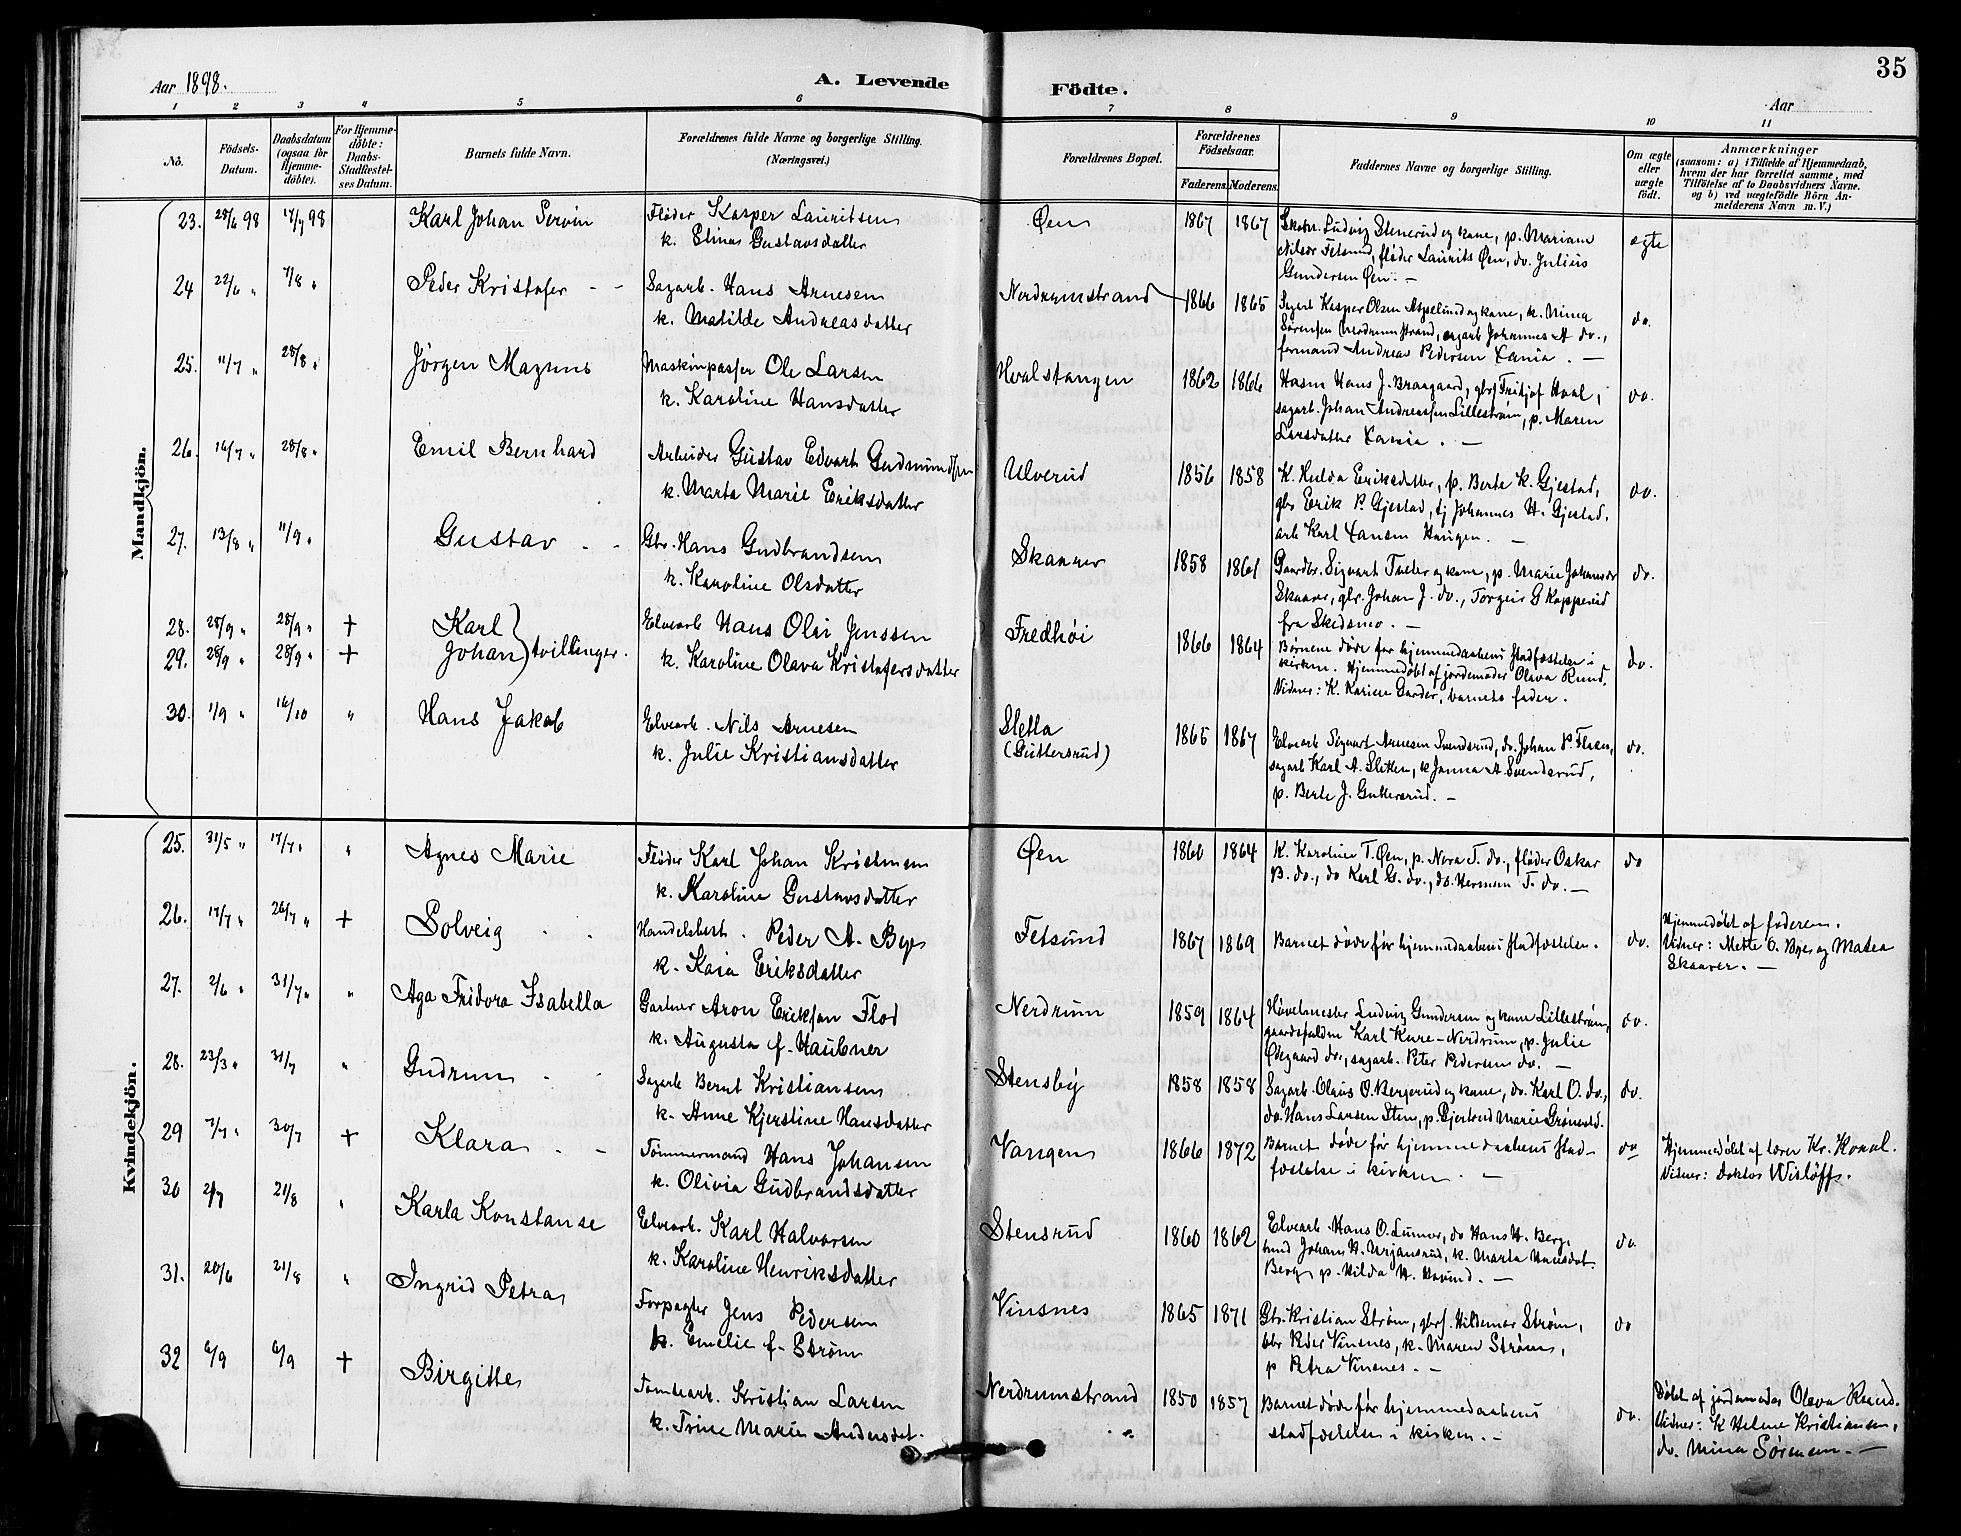 Aar 1898.
A. Levende
Födte.
35
Aar
1 2 3 4 5 6
7 8 9 10 11
No.
Födsels-
Datum.
Daabsdatum
(ogsaa for
Hjemme-
döbte).
For Hjemme-
döbte:
Daabs-
Stadfæstel-
ses Datum.
Barnets fulde Navn.
Forældrenes fulde Navne og borgerlige Stilling.
(Næringsvei.)
Forældrenes Bopæl.
Forældrenes
Födselsaar.
Faderens. Moderens.
Faddernes Navne og borgerlige Stilling.
Om ægte
eller
uægte
födt.
Anmærkninger
(saasom: a) i Tilfælde af Hjemmedaab,
hvem der har forrettet samme, med
Tilföielse af to Daabsvidners Navne.
og b) ved uægtefödte Börn An-
melderens Navn m. V.)
Mandkjön.
23. 28/6 98 17/7 98 Karl Johan Servin Fløder Kasper Lauritsen
k. Elina Gustavsdatter
Øen 1867 1867 Ludvig Stenerud og kone, p. Mariane
Nilsen Fetsund, fløder Laurits Øen, do. Julius
Gundersen Øen. —
ægte
24 22/6 " 7/8 " Peder Kristofer - - Sagarb. Hans Arnesen
k. Matilde Andreasdatter
Nerdrumstrand 1866 1865 Sagarb Kasper Olsen Aspelund og kone, k. Mina
Sørensen Nerdrumstrand, sagarb Johannes A do.,
formand Andreas Pedersen Xania. —
do.
25. 11/7 " 28/8 " Jörgen Magnus Maskinpasser Ole Larsen
k. Karoline Hansdatter
Hvalstangen 1862 1866 Hans J. Braagaard, gbrs Fridtjof Hval,
sagarb. Johan Andreassen Lillestrøm, p. Maren
Larsdatter Xania. —
do.
26. 16/7 " 28/8 " Emil Bernhard Arbeider Gustav Edvart Gudmundsen
k. Marta Marie Eriksdatter
Ulverud 1856 1858 K. Hulda Eriksdatter, p. Berte K. Gjestad,
gbr Erik P. Gjestad, tj Johannes H. Gjestad,
arb Karl Hansen Haugen. —
do.
27. 13/8 " 11/9 " Gustav - - Gbr. Hans Gudbrandsen
k. Karoline Olsdatter
Skaarer 1858 1861 Gaardbr. Sigvart Tveter og kone, p. Marie Johansdr
Skaarer, gbr. Johan J. do., Torgeir G Kopperud
fra Skedsmo. —
do.
28. 28/9 " 28/9 " + Karl
29. 28/9 " 28/9 " + Johan } tvillinger.
Elvearb Hans Olai Jenssen
k. Karoline Olava Kristofersdatter
Fredhøi 1866 1864 Børnene døde før hjemmedaabens stadfæstelse i
kirken. Hjemmedøbt af jordemoder Olava Ruud.
Vidner: K. Karine Garder, barnets fader.
do.
30. 1/9 " 16/10 " Hans Jakob Elvearb. Nils Arnesen
k. Julie Kristiansdatter
Sletta
(Guttersrud)
1865 1867 Elvearb Sigvart Arnesen Svendsrud, do. Johan P. Flaen,
sagarb Karl A. Sletten, k Janna A Svendsrud,
p. Berte J. Guttersrud. —
do.
Kvindekjön.
25. 31/5 " 17/7 " " Agnes Marie Fløder Karl Johan Kristensen
k. Karoline Gustavsdatter
Øen 1860 1864 K. Karoline T. Øen, p. Nora T. do., fløder Oskar
B. do., do Karl G. do., do. Herman T. do. —
do
26. 17/7 " 26/7 " + Solveig - - Handelsbest. Peder A. Bye
k. Kaia Eriksdatter
Fetsund 1867 1869 Barnet døde før hjemmedaabens stadfæstelse.
do. Hjemmedøbt af faderen.
Vidner: Mette O. Bye og Matea
Skaarer. —
27. 2/6 " 31/7 " " Aga Fridora Isabella Gartner Aron Eriksen Flod
k. Augusta f. Haubner
Nerdrum 1859 1864 Høvelmester Ludvig Gundersen og kone Lillestrøm,
gaardsfuldm Karl Kure - Nerdrum, p. Julie
Ødegaard do., sagarb. Peter Pedersen do. —
do.
28. 23/3 " 31/7 " Gudrun - - Sagarb Bernt Kristiansen
k. Anne Kjerstine Hansdatter
Stensby 1858 1858 Sagarb. Olaus O. Bergerud og kone, do. Karl O. do.,
do. Hans Larsen Sten, p. Gjertrud Marie Grønvold.
do.
29 7/7 " 30/7 + Klara - - Tømmermand Hans Johansen
k. Olivia Gudbrandsdatter
Vangen 1866 1872 Barnet døde før hjemmedaabens stad-
fæstelse i kirken. —
do Hjemmedøbt af lærer Kr. Hoaal.
Vidner: Doktor Wisløff.
30 2/7 21/8 " Karla Konstanse Elvearb. Karl Halvorsen
k. Karoline Henriksdatter
Stensrud 1860 1862 Elvearb. Hans O. Lunner, do Hans H. Berg,
Johan H. Ørjansrud, k. Marta Hansdat.
Berg, p. Hilda H. Hovind. —
do.
31. 20/6 21/8 " Ingrid Petra Forpagter Jens Pedersen
k. Emelie f. Strøm
Vinsnes 1865 1871 Gbr. Kristian Strøm, gbrs. Hildemar Strøm,
gbr Peder Vinsnes, k. Maren Strøm,
p Petra Vinsnes. —
do
32 6/9 6/9 + Birgitte Tomtearb. Kristian Larsen
k. Trine Marie Andersdat.
Nerdrumstrand 1850 1857 Barnet døde før hjemmedaabens
stadfæstelse i kirken. —
do. Døbt af jordemoder Olava Ruud.
Vidner: K Helene Kristiansen,
do. Mina Sørensen. —